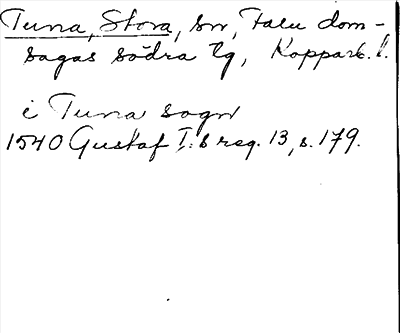 Tuna, Stora, sn, Falu dom-
sagas södra tg, Kopparb. l.
i Tuna sogn
1540 Gustaf I:s reg. 13, s. 179.